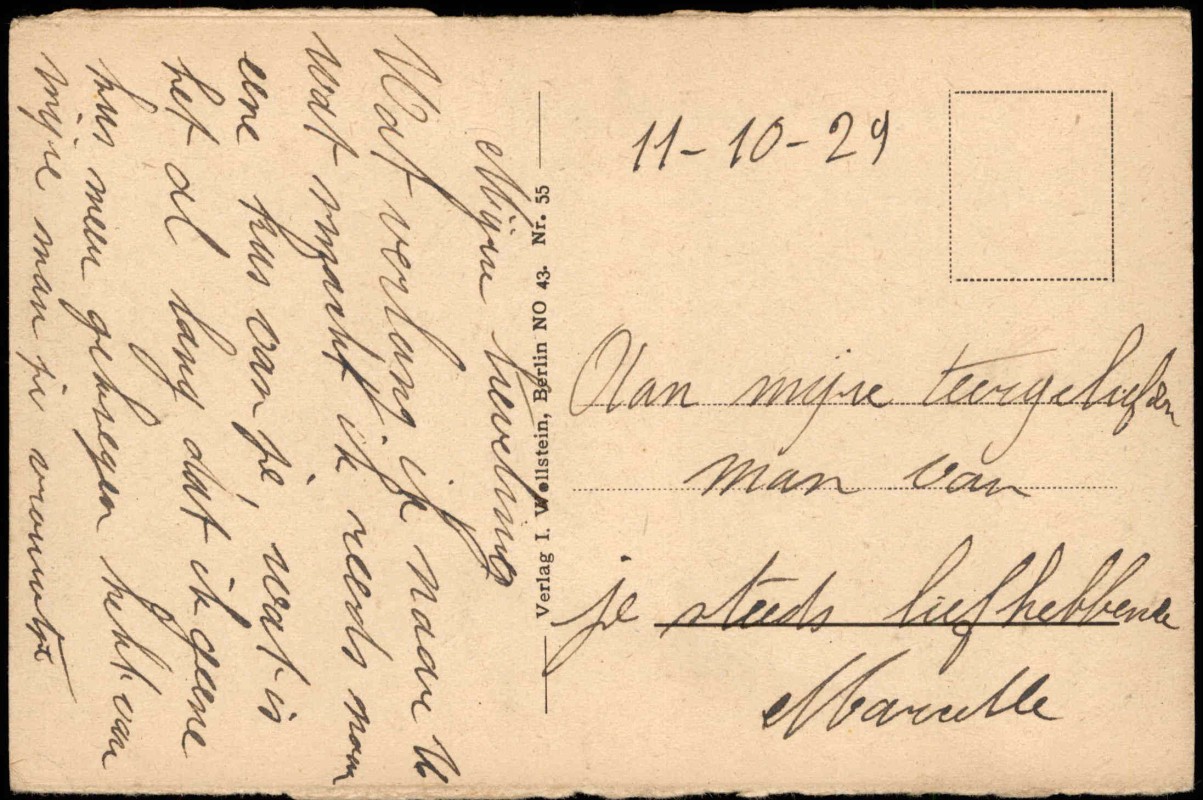 Mijne lieveling
Wat verlang ik naar U
wat smacht ik reeds naar
eene kus van je, wat is
het al lang dat ik geene
kus meer gekregen hebt van
mijne man je vrouwtje
Verlag I. Wollstein, Berlin NO 43. Nr. 55
11-10-29
Aan mijne teergeliefden
man van
je steeds liefhebbende
Marcelle